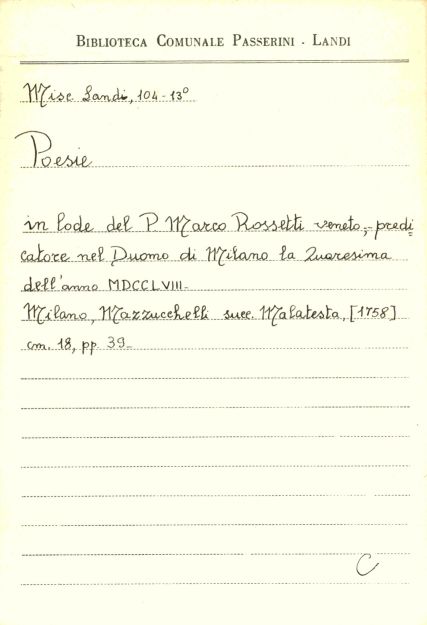 BIBLIOTECA COMUNALE PASSERINI - LANDI
Misc Landi, 104-13°
Poesie
in lode del P. Marco Rossetti veneto,-predi
catore nel Duomo di Milano la Quaresima
dell'anno MDCCLVIII-
Milano, Mazzucchelli succ. Malatesta, [1758]
cm. 18, pp. 39-
C